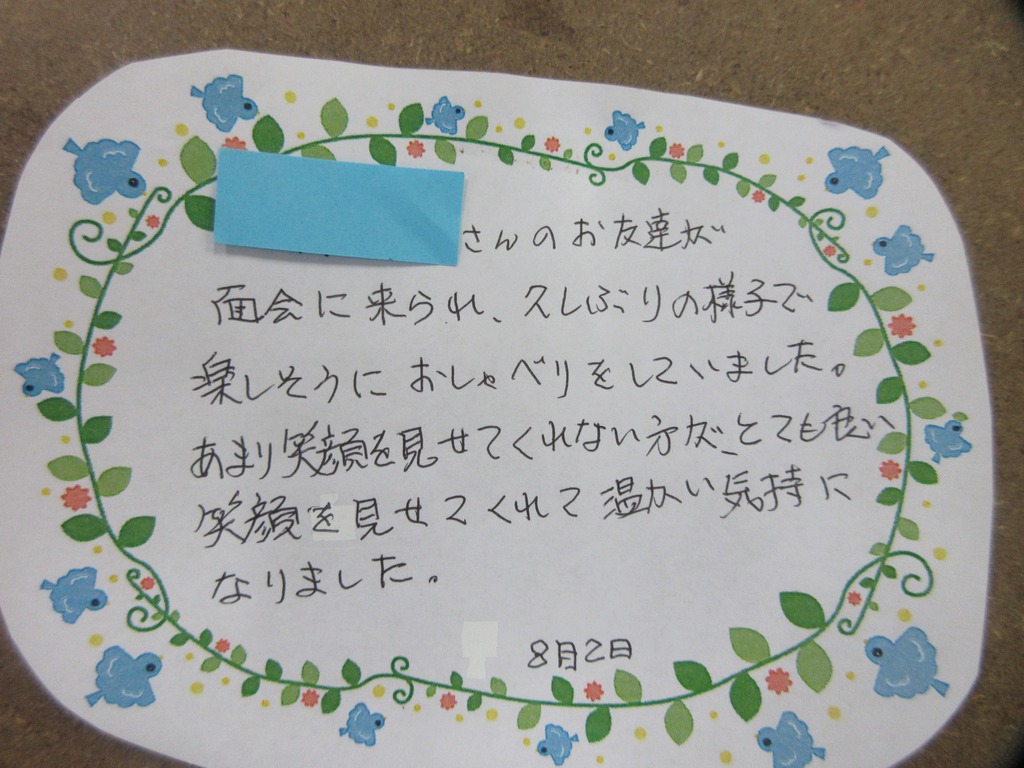 さんのお友達が
面会に来られ、久しぶりの様子で
楽しそうにおしゃべりをしていました。
あまり笑顔を見せてくれない方が、とても良い
笑顔を見せてくれて温かい気持に
なりました。
8月2日